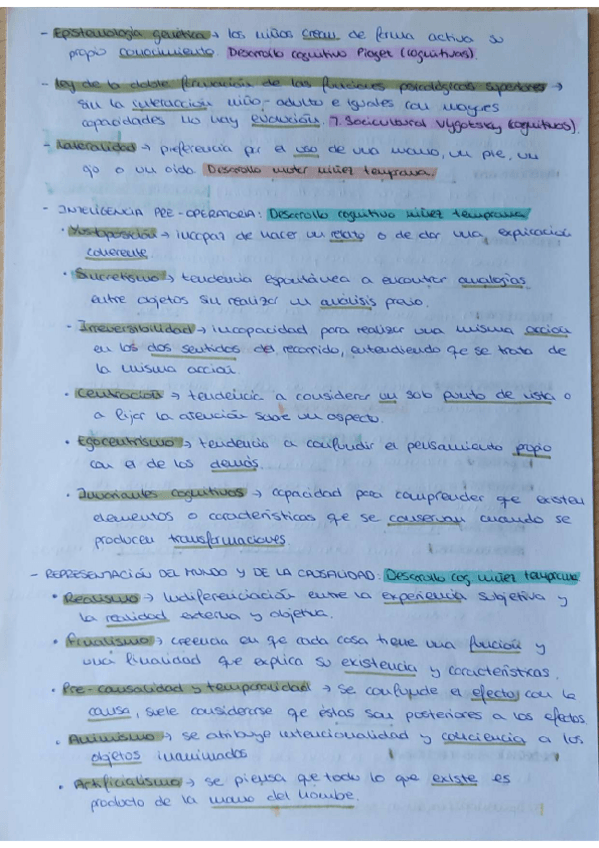 - Epistemología genética → los niños crean de forma activa su
propio conocimiento. Desarrollo cognitivo Piaget (cognitivas).
- Ley de la doble formación de las funciones psicológicas superiores →
sin la interacción niño-adulto e iguales con mayores
capacidades no hay evolución. T. Sociocultural Vygotsky (cognitivas).
- Lateralidad → preferencia por el uso de una mano, un pie, un
ojo o un oído. Desarrollo motor niñez temprana.
- INTELIGENCIA PRE-OPERATORIA: Desarrollo cognitivo niñez temprana
• Yuxtaposición → incapaz de hacer un relato o de dar una explicación
coherente.
• Sincretismo → tendencia espontánea a encontrar analogías
entre objetos sin realizar un análisis previo.
- Irreversibilidad → incapacidad para realizar una misma acción
en los dos sentidos del recorrido, entendiendo qe se trata de
la misma acción
• Centración → tendencia a considerar un solo punto de vista o
a fijar la atención sobre un aspecto.
• Egocentrismo → tendencia a confundir el pensamiento propio
con el de los demás.
• Invariantes cognitivos → capacidad para comprender qe existen
elementos o características qe se conservan cuando se
producen transformaciones.
- REPRESENTACIÓN DEL MUNDO Y DE LA CAUSALIDAD: Desarrollo cog niñez temprana
• Realismo → Indiferenciación entre la experiencia subjetiva y
la realidad externa y objetiva.
• Finalismo → creencia en qe cada cosa tiene una función y
una finalidad que explica su existencia y características.
• Pre-causalidad y temporalidad → se confunde el efecto con la
causa, suele considerarse qe éstas son posteriores a los efectos.
• Animismo → se atribuye intencionalidad y conciencia a los
objetos inanimados
• Artificialismo → se piensa que todo lo que existe es
producto de la mano del hombre.